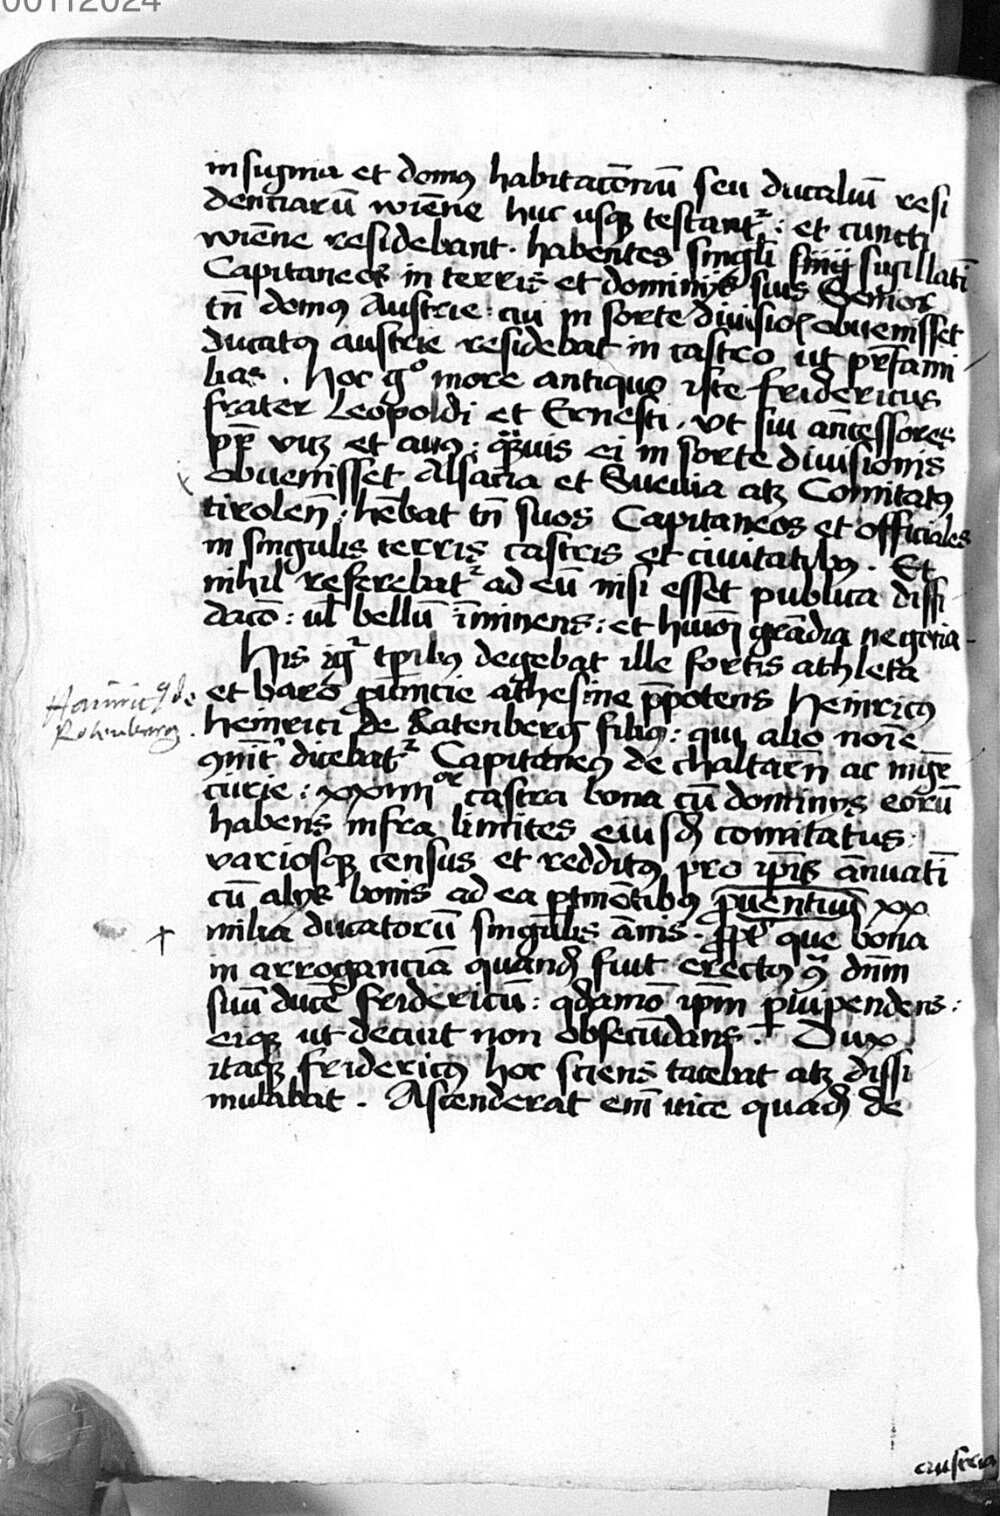 00112024
insignia et domus habitacōnū seu ducaliū resi
denciarū wiēne huc usq testantᷣ : et cuncti
wiēne residebant . habentes singli sigillati
Capitaneos in terris et dominijs suis Senior
tn̄ domus Austrie : cui in sorte diuisiōī obuenisset
ducatus austrie residebat in castro ut pr̄fami
lias . Hoc gͦ more antiquo iste fridericus
frater Leopoldi et Ernesti . vt sui an̄cessores
pr̄ viz et auus : quāuis ei in sorte diuisionis
obuenisset Alsacia et Sueuia atz Comitatus
tirolen̄ : hēbat tn̄ suos Capitaneos et officiales
in singulis terris castris et ciuitatibus . Et
nihil referebatᷣ ad eū nisi esset publica diffi
dacō : ul bellū īminens : et huiōī grādia negocia
His igᷣ tp̄ibus degebat ille fortis athleta
et baro ꝓuīncie athesine p̄potens Heinricus
heinrici de Ratenberg filius : qui alio noīe
9nitᷣ dicebatᷣ Capitaneus de chaltarn̄ ac
curie : xxiiiiᵒʳ castra bona cū dominijs eorū
habens infra limites eiusdē comitatus
variosq census et redditus pro ip̄is ānuati
cū alijs bonis ad ea ꝑtinētibus ꝓuentiuū xx
milia ducatorū singulis ānis . ꝓpt̄ que bona
in arroganciā quandā fuit erectus 9ͣ dn̄m
suū ducē fridericū : qdāmō ip̄m ꝑuipendens :
eiq ut decuit non obsecūdans . + Dux
itaq fridericus hoc sciens tacebat atz dissi
mulabat . Ascenderat em̄ vice quadā de
Hainricus de
Rotenburg .
+
austria